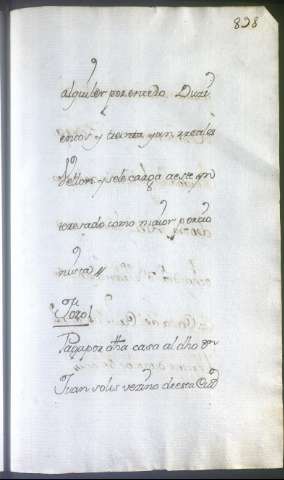 838
alquiler por entedo Duzi
entos y treinta y un rreales
Vellon y sele carga a este yn
teresado como maior porcio
nista
Pagapor dha casa al dho Dn
Juan solis vezino de esta Ciud